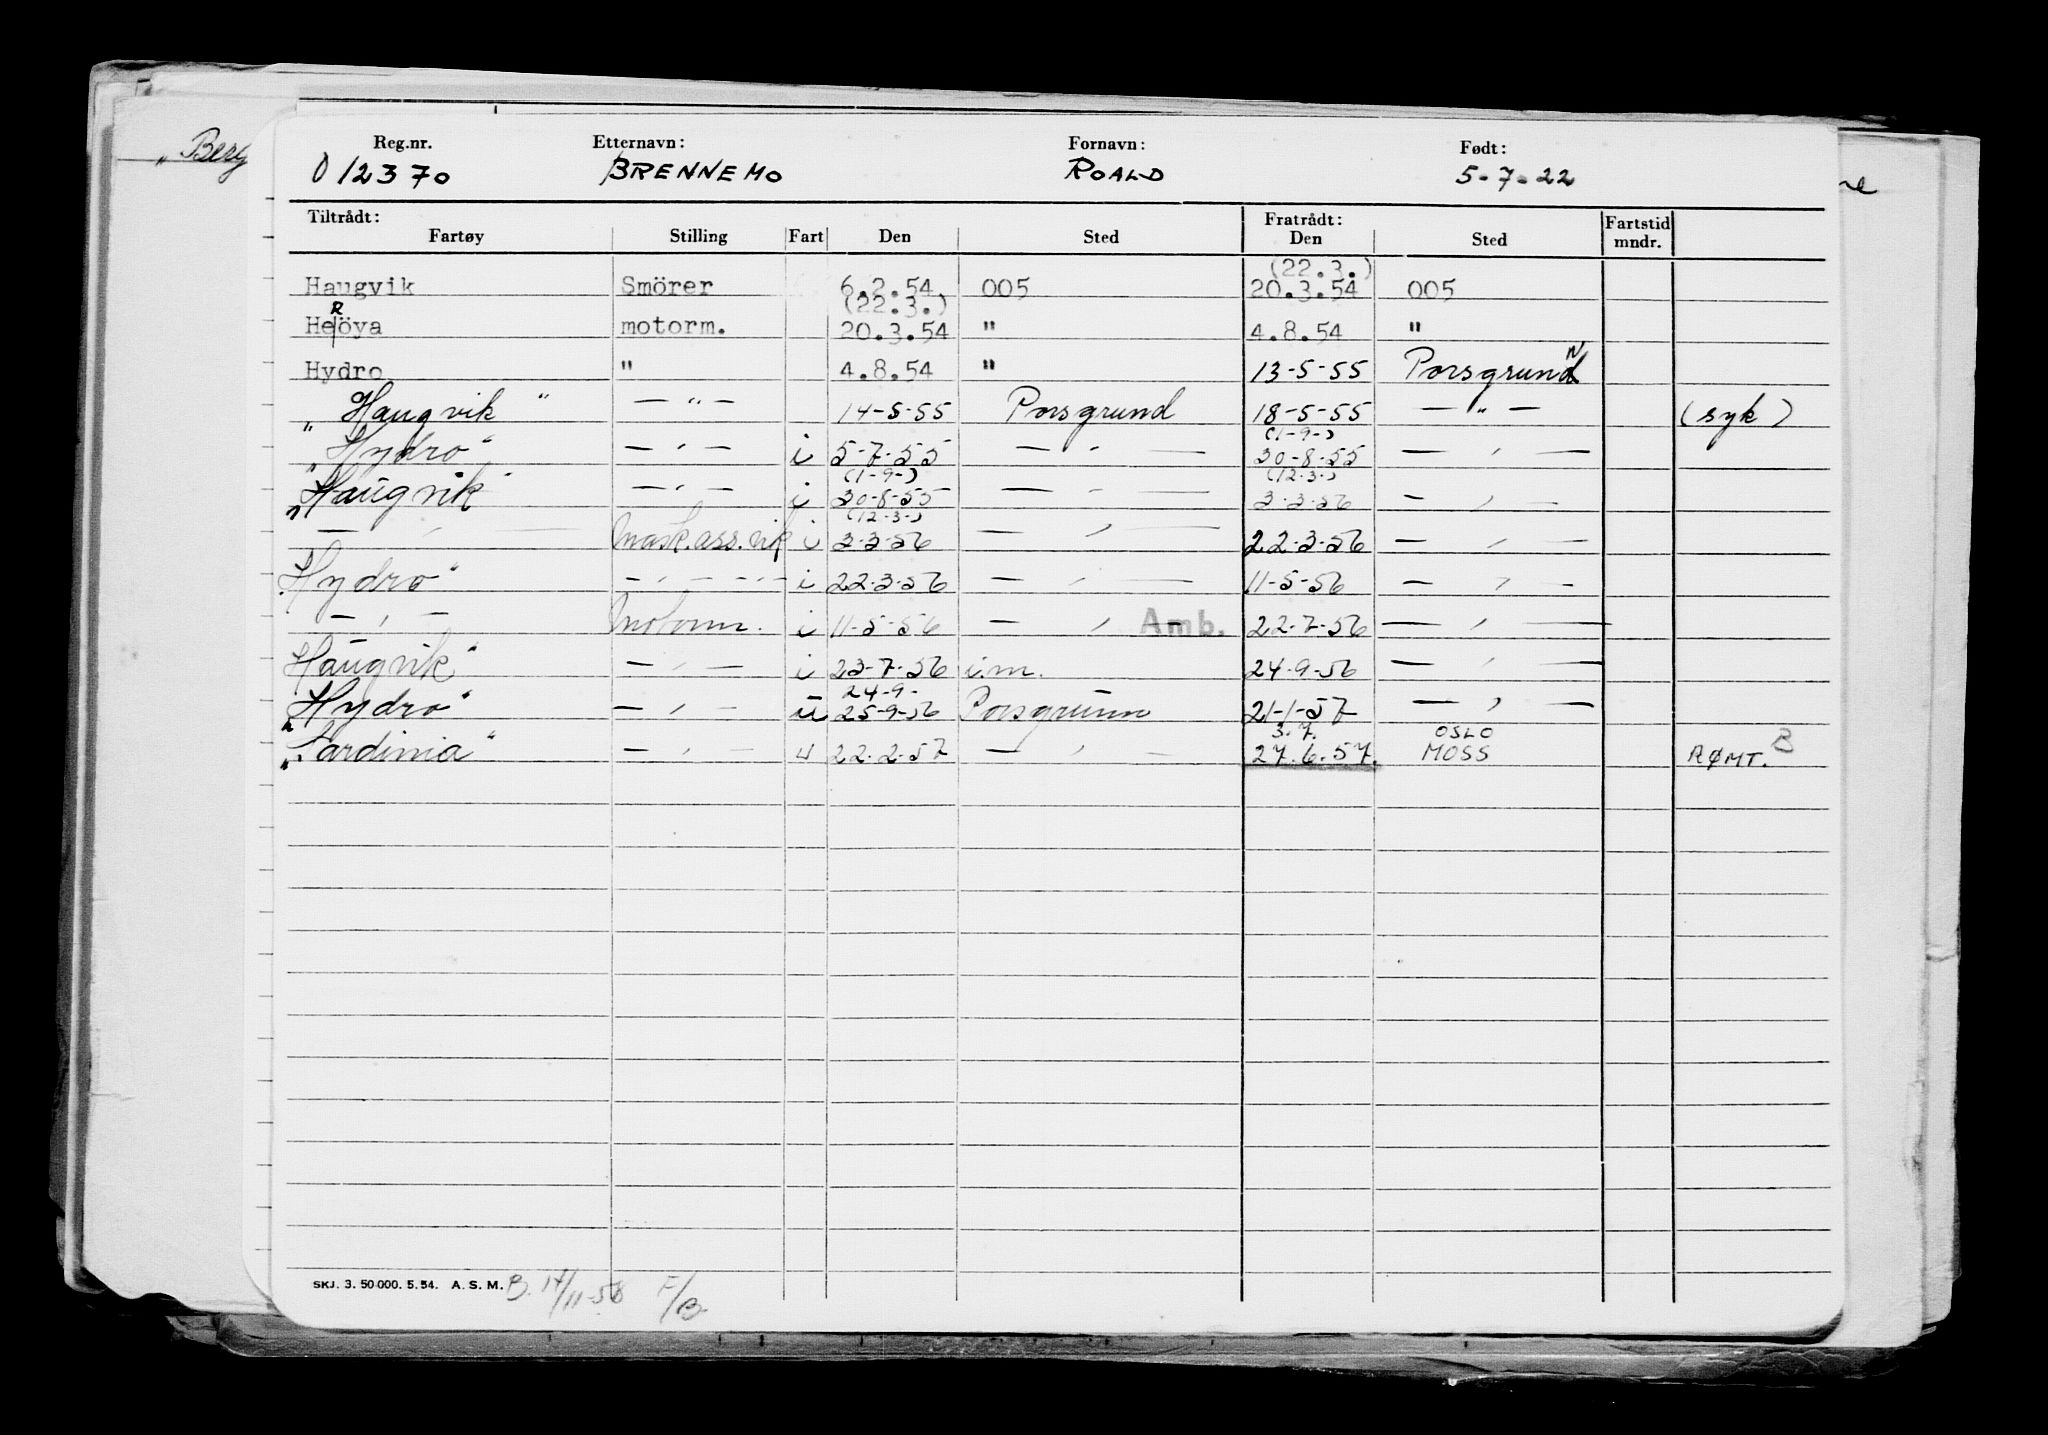 „Berg
Reg.nr. Etternavn: Fornavn: Født:
012370 BRENNEMO ROALD 5-7-22
Tiltrådt: Fratrådt: Fartstid
Fartøy Stilling Fart Den Sted Den Sted mndr.
(22.3.)
Haugvik Smörer 6.2.54 005 20.3.54 005
R (22.3.)
Heöya motorm. 20.3.54 " 4.8.54 "
Hydro " 4.8.54 " 13-5-55 Porsgrunn
„Haugvik" — " — 14-5-55 Porsgrund 18-5-55 — " — (syk)
(1-9-)
„Hydro" — " — i 5-7-55 — " — 30-8-55 — " —
(1-9-) (12-3-)
„Haugvik" — " — i 30-8-55 — " — 3-3-56 — " —
(12-3-)
— " — Mask.ass.vik i 3-3-56 — " — 22-3-56 — " —
Hydro" — " — " — i 22-3-56 — " — 11-5-56 — " —
— " — Motorm. i 11-5-56 — " — Amb. 22-7-56 — " —
Haugvik" — " — i 23-7-56 i.m. 24-9-56 — " —
24-9-
„Hydro" — " — u 25-9-56 Porsgrunn 21-1-57 — " —
3.7. OSLO
„Sardinia" — " — u 22-2-57 — " — 27.6.57. MOSS RØMT. B
SKJ. 3. 50 000. 5.54. A. S. M. B. 17/11-58 F/B